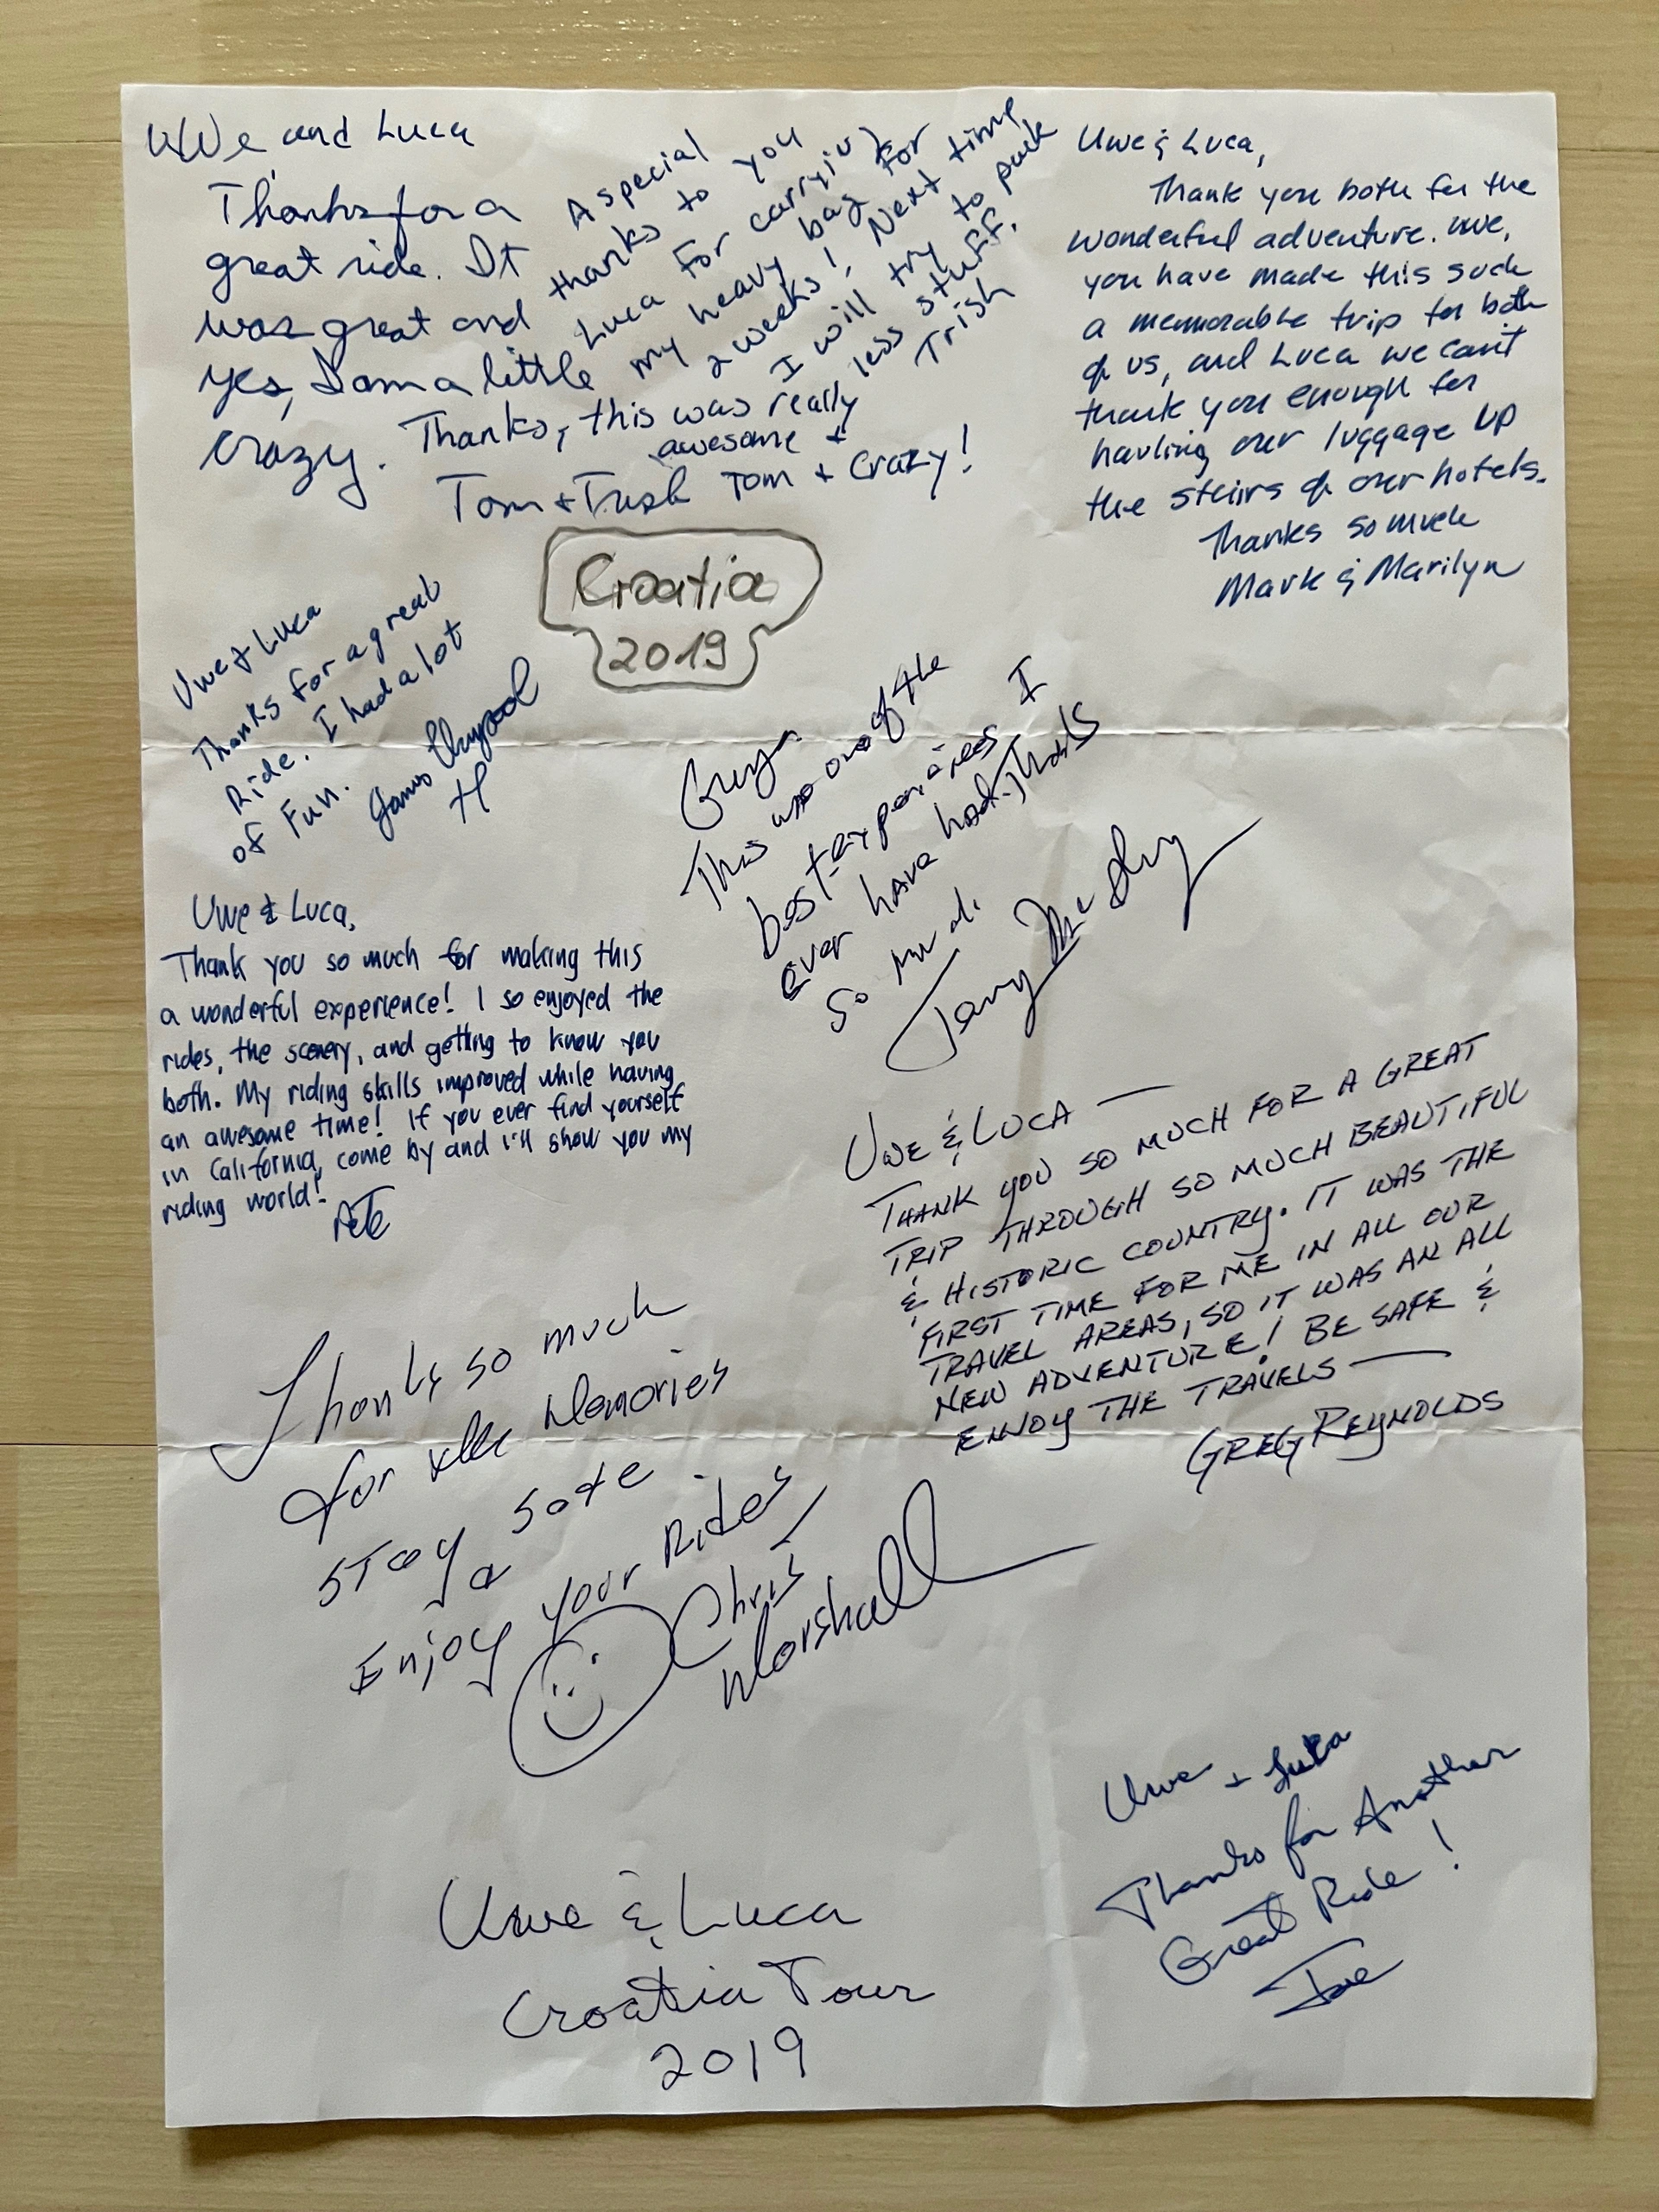 Uwe and Luca
Thanks for a
great ride. It
was great and
yes, I am a little
crazy. Thanks, this was really
awesome +
Tom + Trish Tom + Crazy!
A special
thanks to you
Luca for carrying
my heavy bag for
2 weeks! Next time
I will try to pack
less stuff.
Trish
Uwe & Luca,
Thank you both for the
wonderful adventure. Uwe,
you have made this such
a memorable trip for both
of us, and Luca we can't
thank you enough for
hauling our luggage up
the stairs of our hotels.
Thanks so much
Mark & Marilyn
Croatia
2019
Uwe & Luca
Thanks for a great
Ride. I had a lot
of Fun.
James
Guys.
This was one of the
best experiences I
ever have had. Thanks
so much.
Uwe & Luca,
Thank you so much for making this
a wonderful experience! I so enjoyed the
rides, the scenery, and getting to know you
both. My riding skills improved while having
an awesome time! If you ever find yourself
in California, come by and I'll show you my
riding world!
Pete
UWE & LUCA —
THANK YOU SO MUCH FOR A GREAT
TRIP THROUGH SO MUCH BEAUTIFUL
& HISTORIC COUNTRY. IT WAS THE
FIRST TIME FOR ME IN ALL OUR
TRAVEL AREAS, SO IT WAS AN ALL
NEW ADVENTURE! BE SAFE &
ENJOY THE TRAVELS —
GREG REYNOLDS
Thanks so much
for the Memories
Stay safe
&
Enjoy your Rides
Chris
Marshall
Uwe + Luka
Thanks for Another
Great Ride!
Joe
Uwe & Luca
Croatia Tour
2019